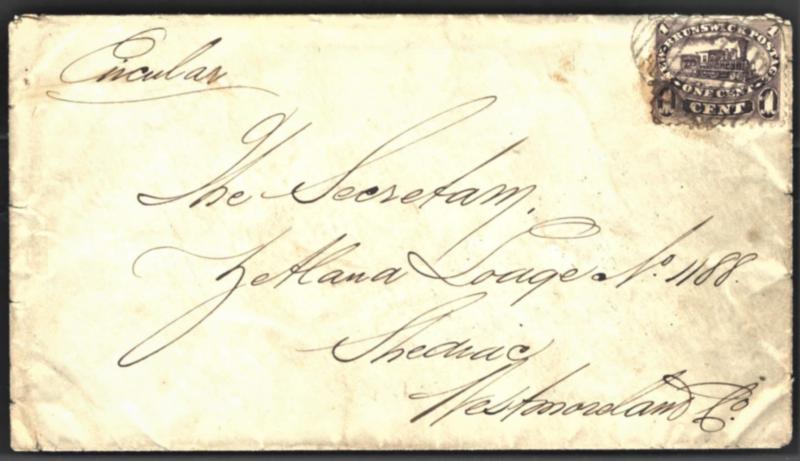 Circular
1 1
NEW BRUNSWICK POSTAGE
ONE CENT
1 CENT 1
The Secretary,
Zetland Lodge No. 1188.
Shediac
Westmoreland Co.